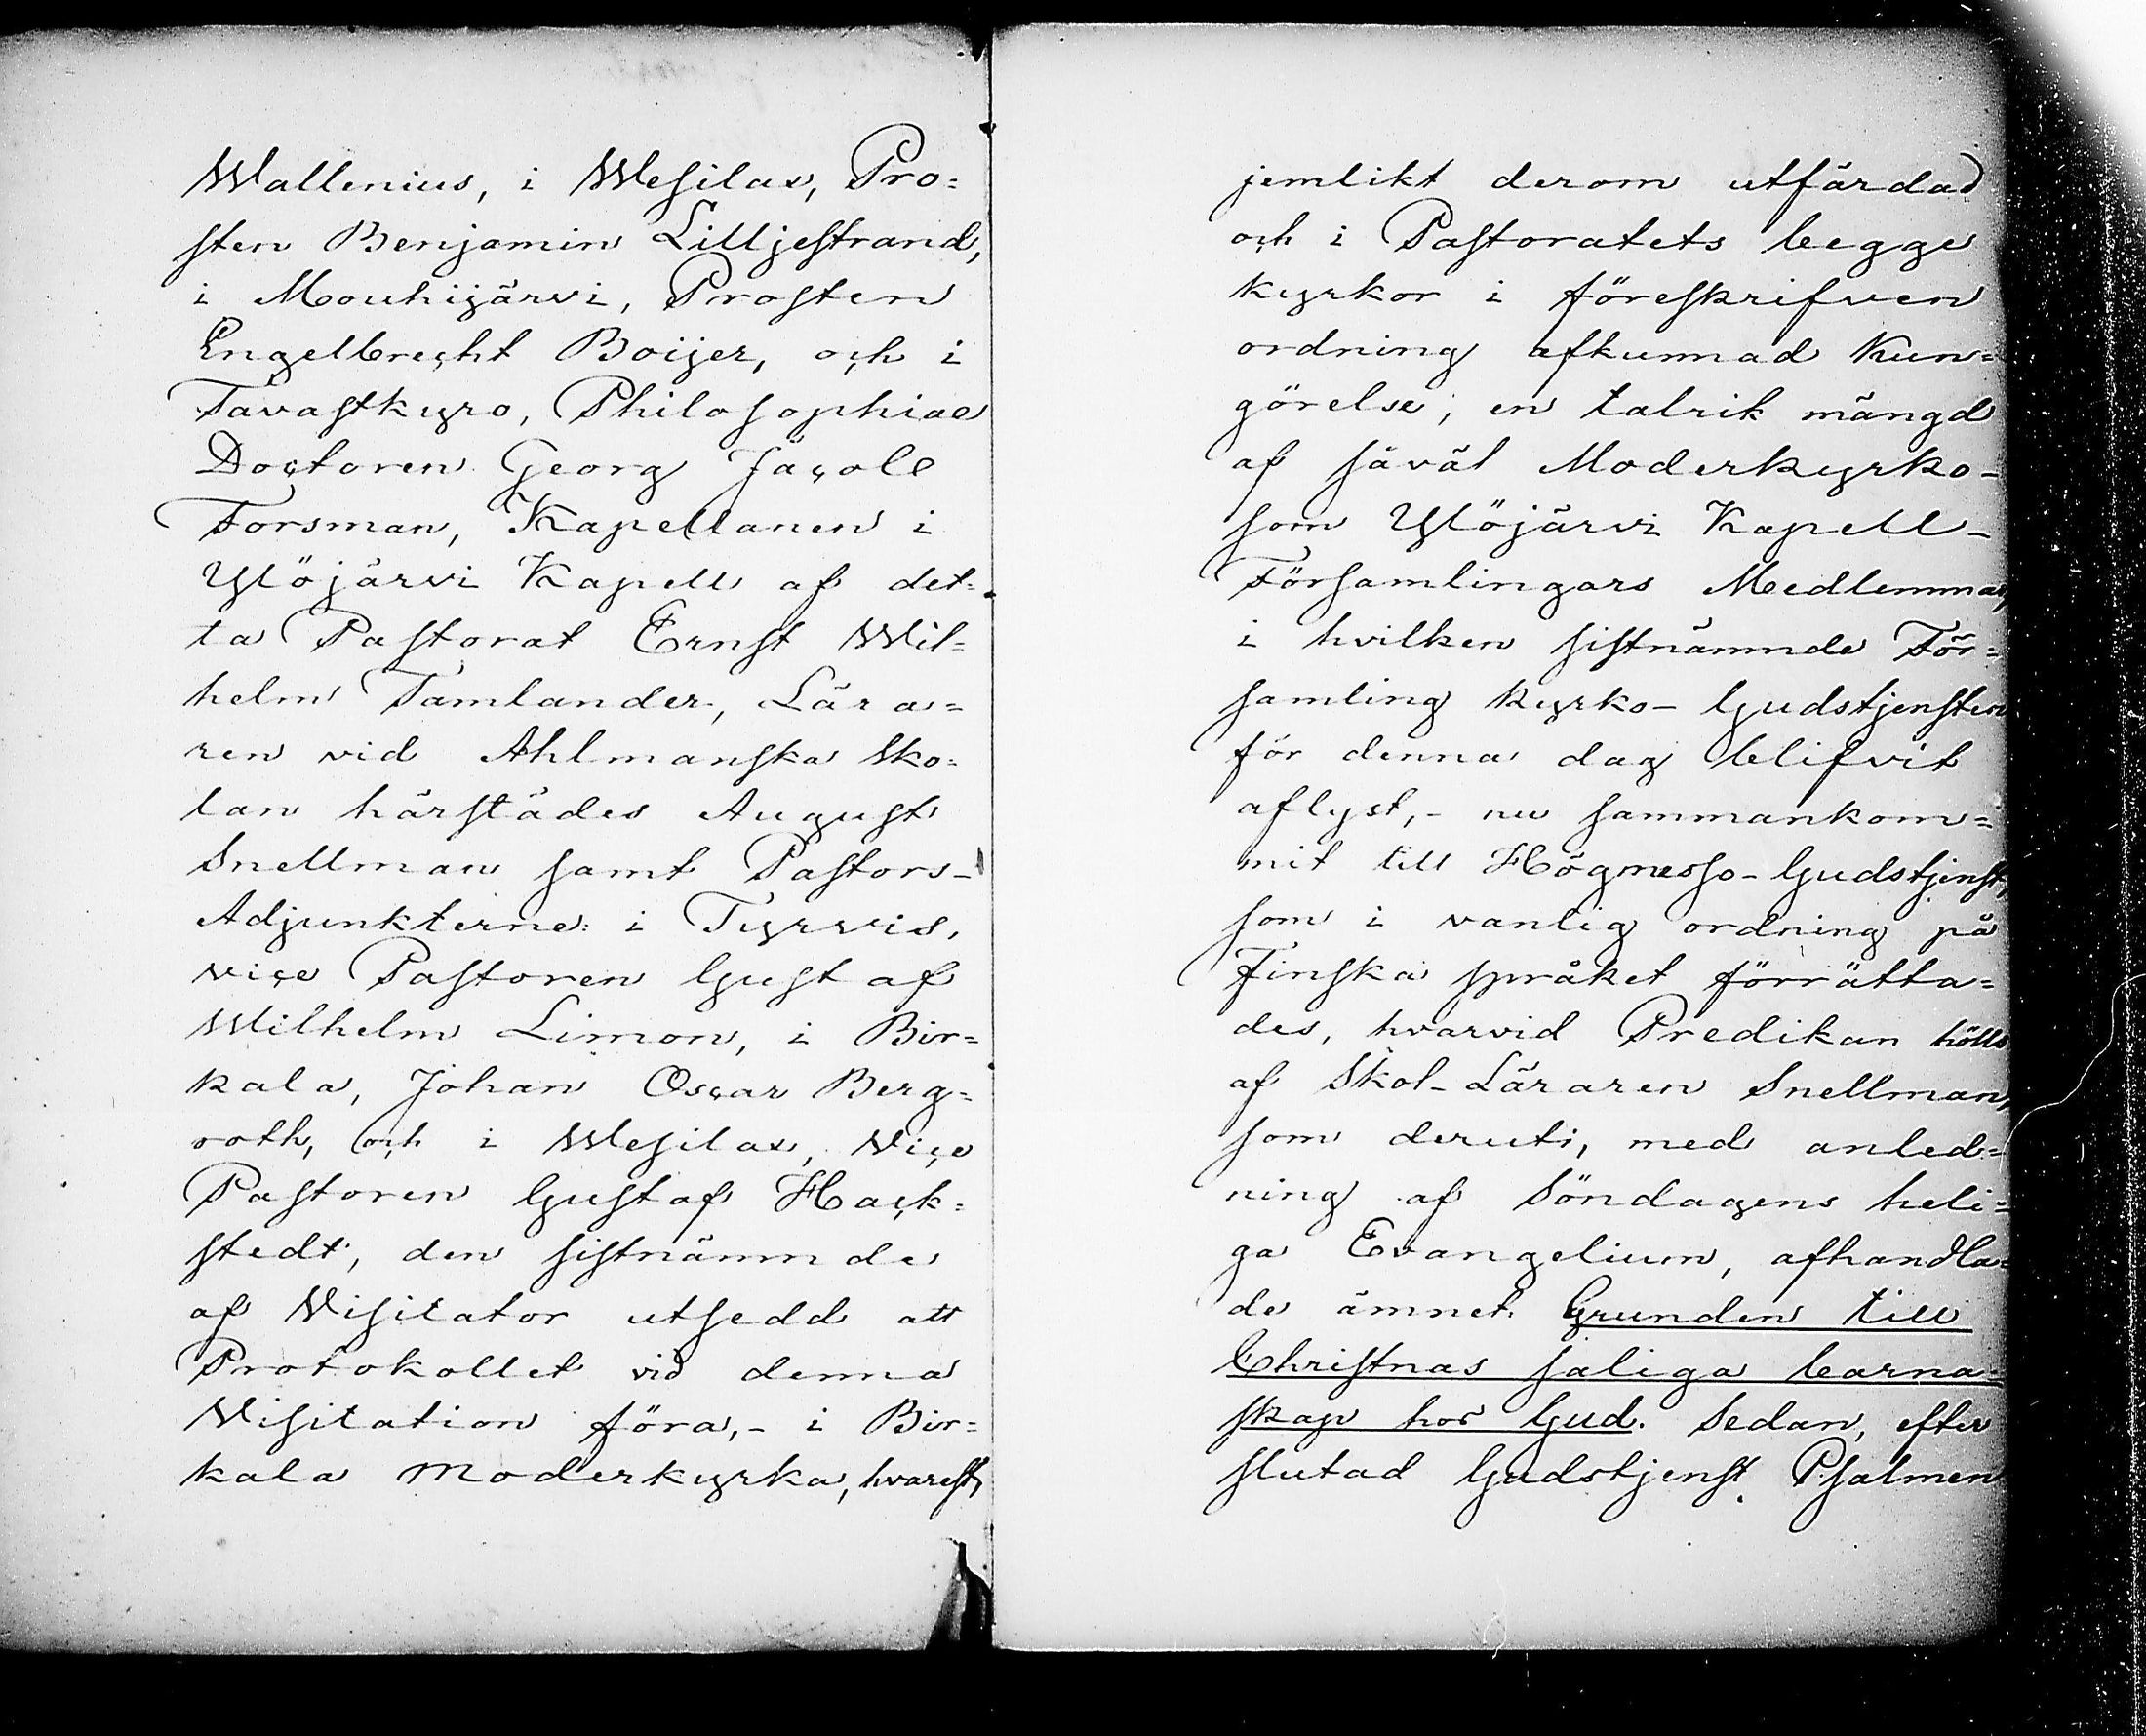 Wallenius, i Wesilax, Pro=
sten Benjamin Lilljestrand,
i Mouhijärvi, Prosten
Engelbrecht Boijer, och i
Tavastkyro, Philosophiae
Doctoren Georg Jacob
Forsman, Kapellanen i
Ylöjärvi Kapell af det=
ta Pastorat Ernst Wil=
helm Tamlander, Lära=
ren vid Ahlmanska Sko=
lan härstädes August
Snellman samt Pastors-
Adjunkterne: i Tyrvis,
vice Pastoren Gustaf
Wilhelm Limon, i Bir=
kala, Johan Oscar Berg=
roth, och i Wesilax, Vice
Pastoren Gustaf Hack=
stedt, den sistnämnde
af Visitator utsedd att
Protokollet vid denna
Visitation föra,- i Bir=
kala Moderkyrka, hvarest,
jemlikt derom utfärdad
och i Pastoratets begge
kyrkor i föreskrifven
ordning afkunnad Kun=
görelse, en talrik mängd
af såväl Moderkyrko-
som Ylöjärvi Kapell-
Församlingars Medlemmar,
i hvilken sistnämnde För=
samling kyrko-Gudstjensten
för denna dag blifvit
aflyst,- nu sammankom=
mit till Högmesso-Gudstjenst,
som i vanlig ordning på
Finska språket förrätta=
des, hvarvid Predikan hölls
af Skol-Läraren Snellman,
som deruti, med anled=
ning af Söndagens heli=
ga Evangelium, afhandla=
de ämnet: Grunden till
Christnas saliga barna=
skap hos Gud. Sedan, efter
slutad Gudstjenst, Psalmen